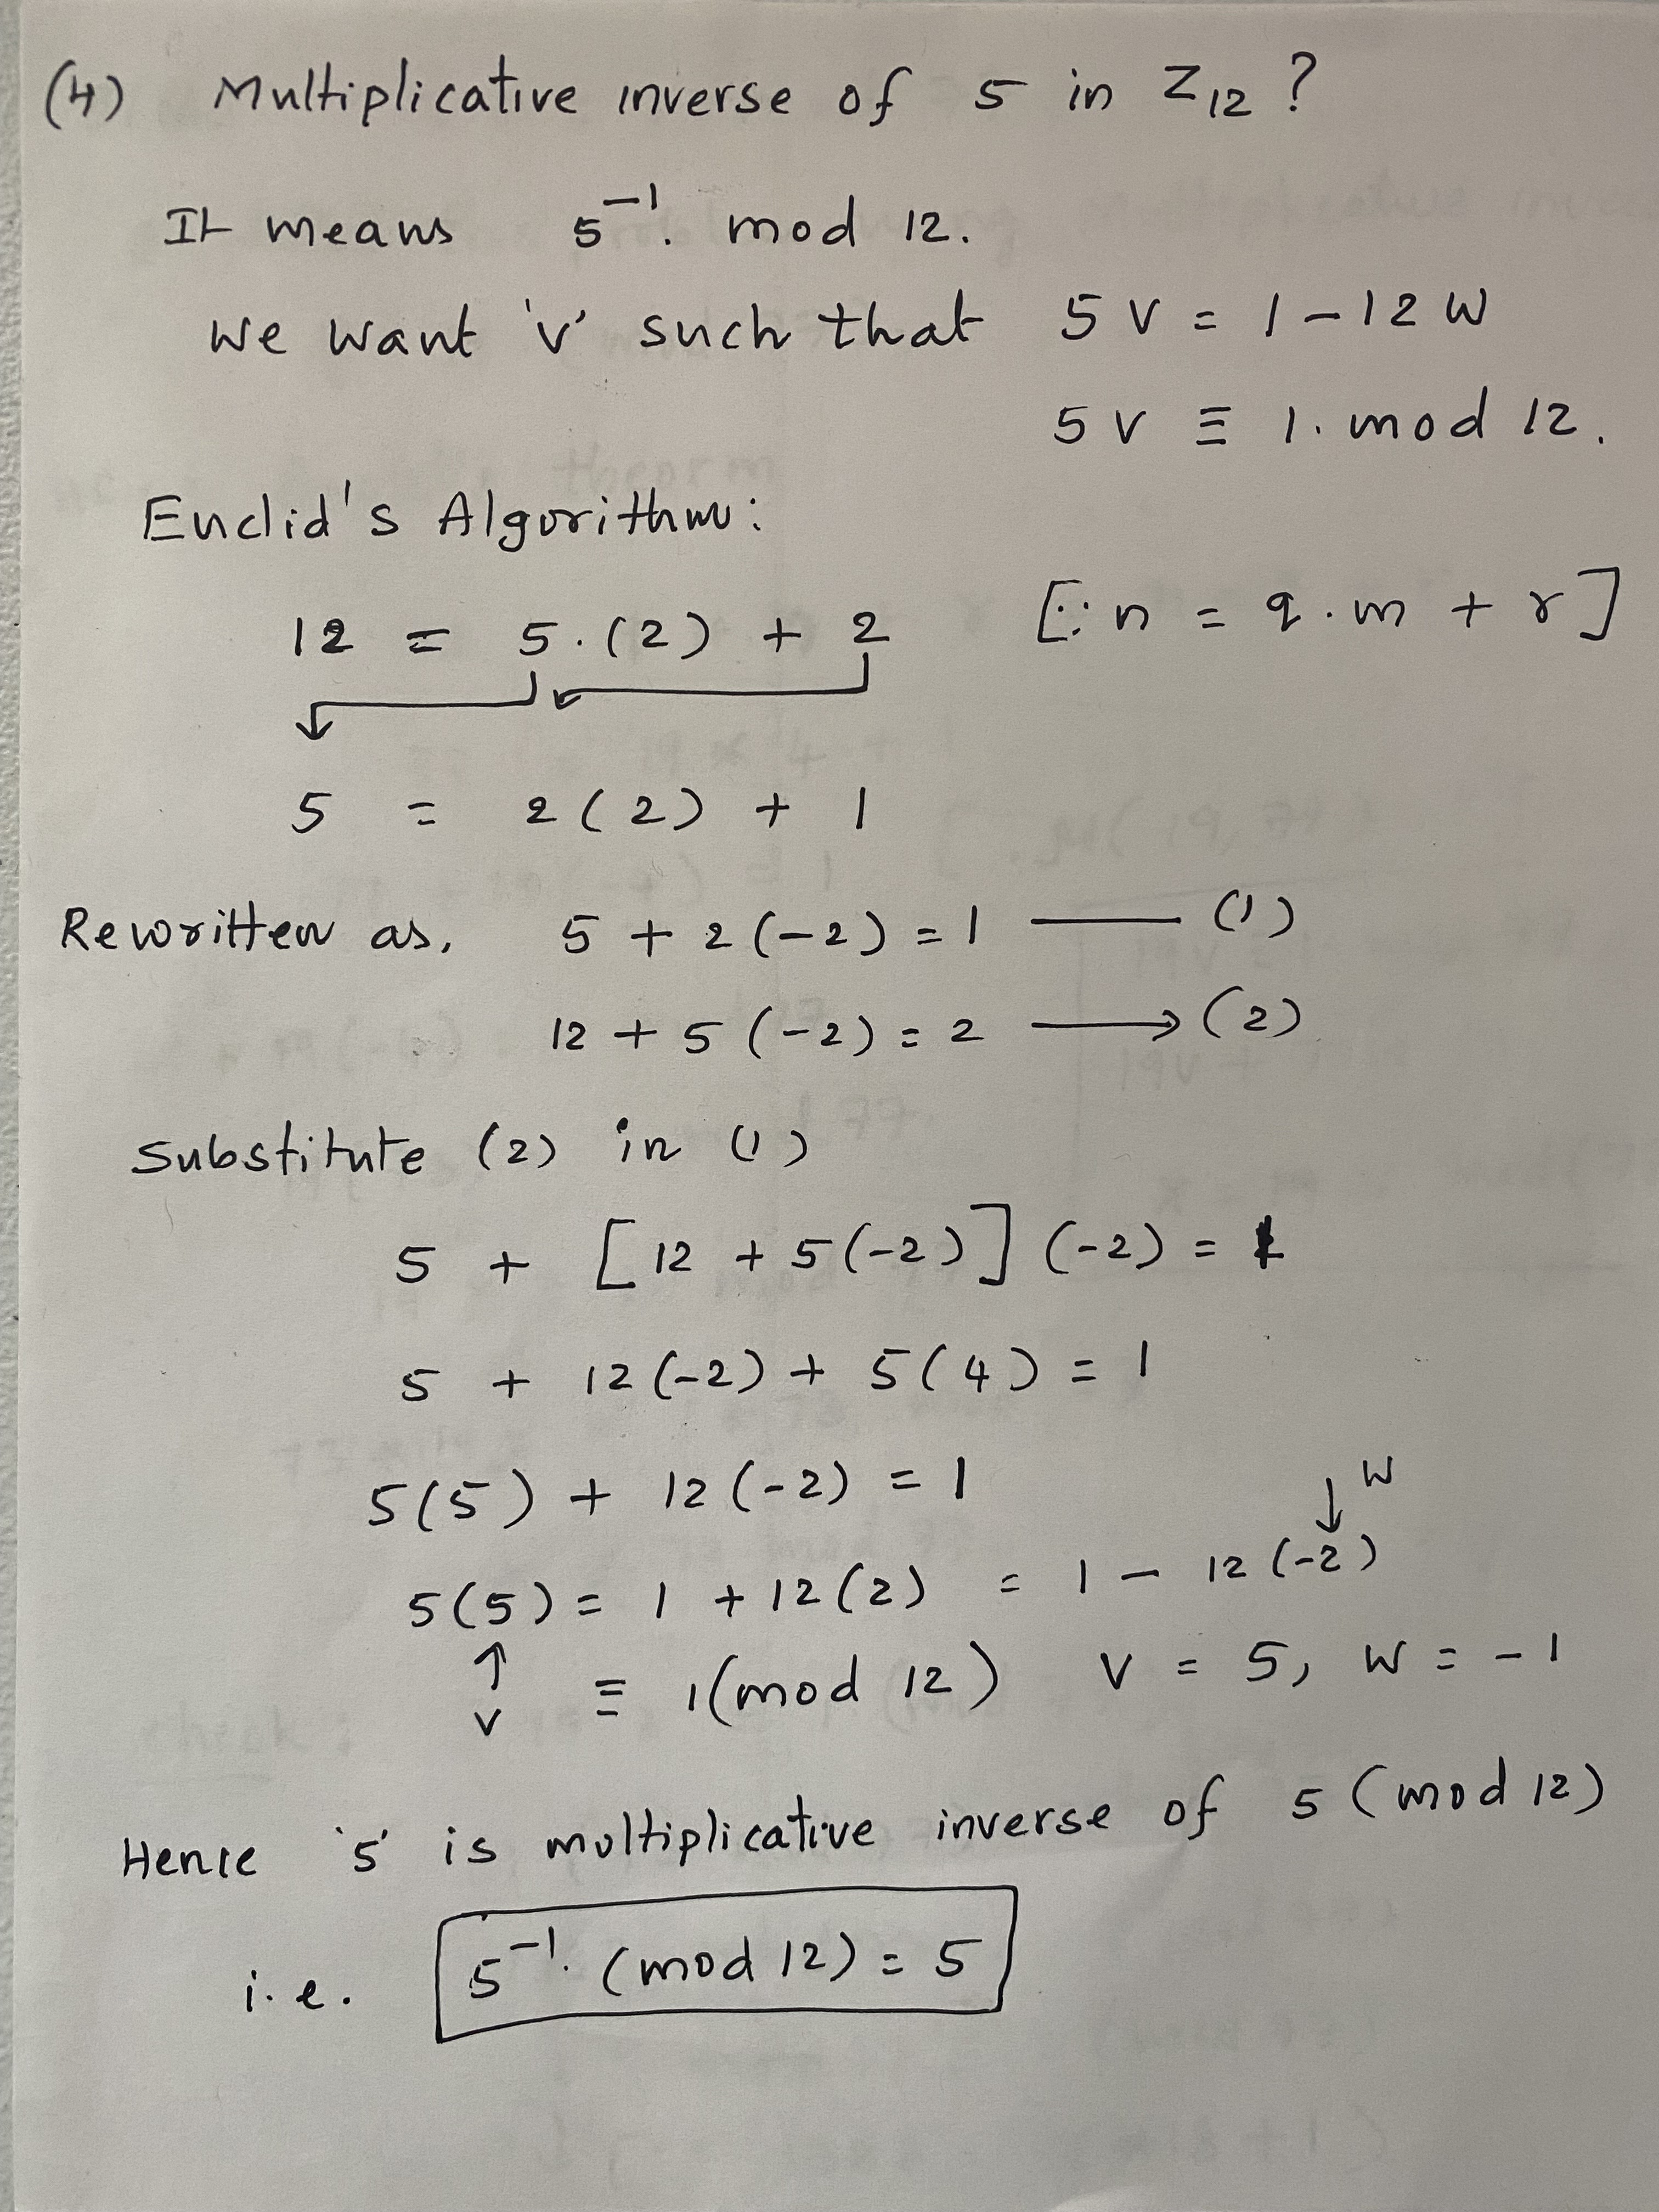 (4) Multiplicative inverse of 5 in Z₁₂ ?
It means 5⁻¹. mod 12.
We want 'v' such that 5 v = 1 - 12 w
5 v ≡ 1. mod 12.
Euclid's Algorithm:
12 = 5.(2) + 2 [∵ n = q.m + r]
5 = 2(2) + 1
Rewritten as, 5 + 2(-2) = 1 —— (1)
12 + 5(-2) = 2 ⟶ (2)
Substitute (2) in (1)
5 + [12 + 5(-2)] (-2) = 1
5 + 12(-2) + 5(4) = 1
5(5) + 12(-2) = 1
↓ w
5(5) = 1 + 12(2) = 1 - 12(-2)
↑ v ≡ 1(mod 12) v = 5, w = -1
Hence '5' is multiplicative inverse of 5 (mod 12)
i.e. 5⁻¹. (mod 12) = 5